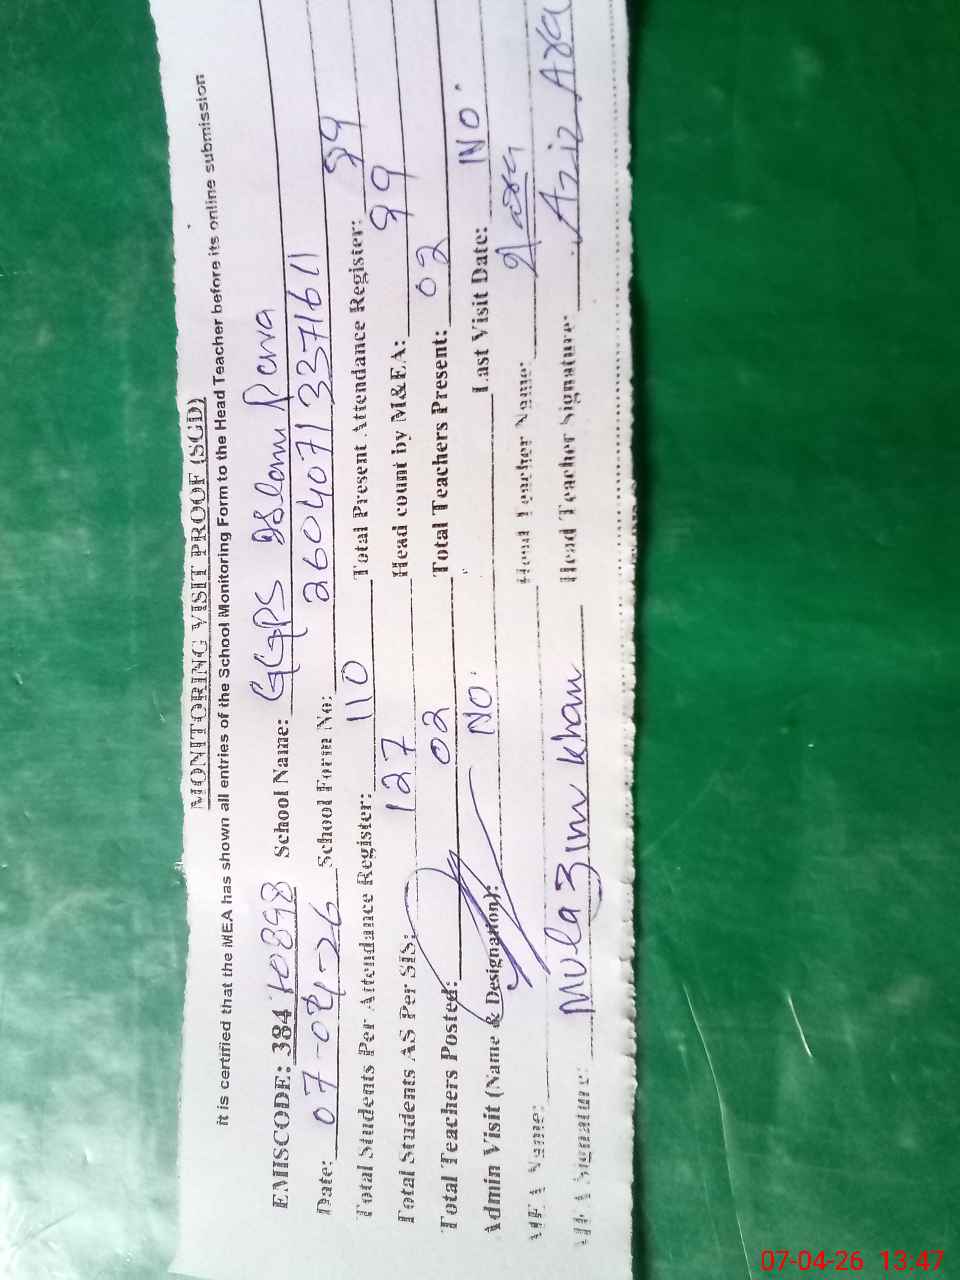 MONITORING VISIT PROOF (SGD)
it is certified that the MEA has shown all entries of the School Monitoring Form to the Head Teacher before its online submission
EMISCODE: 38410898 School Name: GGPS Islam Pura
Date: 07-04-26 School Form No: 26040713371611
Total Students Per Attendance Register: 110 Total Present Attendance Register: 99
Total Students AS Per SIS: 127 Head count by M&EA: 99
Total Teachers Posted: 02 Total Teachers Present: 02
Admin Visit (Name & Designation): NO. Last Visit Date: NO.
MEA Name: Head Teacher Name:
MEA Signature: Mulazim Khan Head Teacher Signature: Aziz
07-04-26 13:47